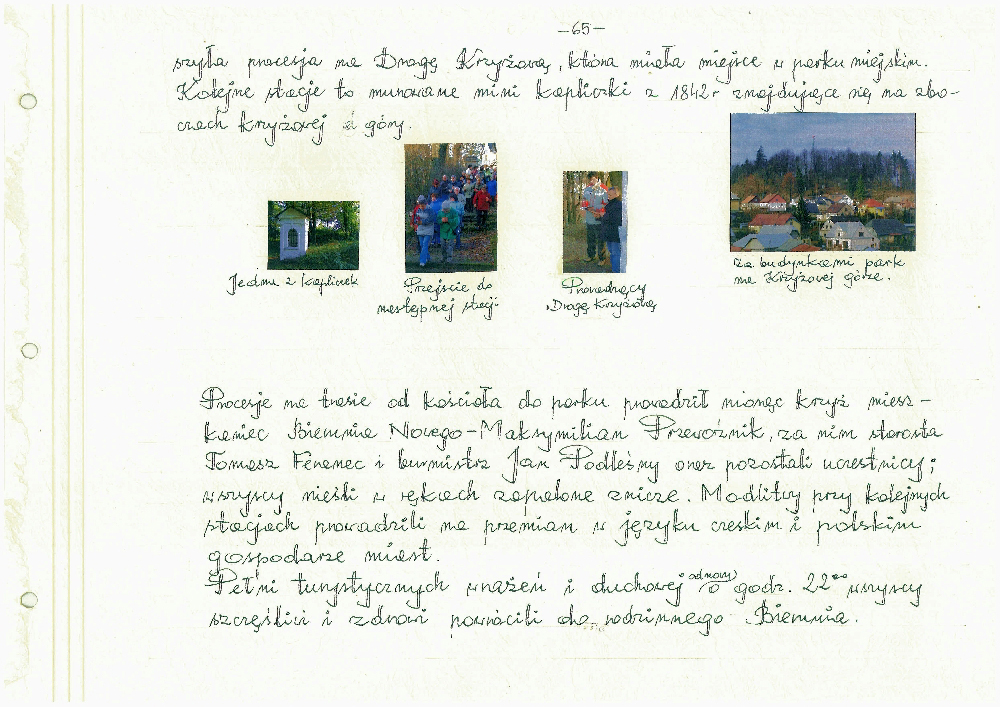 -65-
szyła procesja na Drogę Krzyżową, która miała miejsce w parku miejskim.
Kolejne stacje to murowane mini kapliczki z 1842r znajdujące się na zbo-
czach krzyżowej góry.
Jedna z kapliczek
Przejście do
następnej stacji
Prowadzący
Drogę Krzyżową
Za budynkami park
na Krzyżowej górze.
Procesję na trasie od kościoła do parku prowadził niosąc krzyż miesz-
kaniec Bierunia Nowego-Maksymilian Przewoźnik, za nim starosta
Tomasz Ferenec i burmistrz Jan Podleśny oraz pozostali uczestnicy;
wszyscy nieśli w rękach zapalone znicze. Modlitwy przy kolejnych
stacjach prowadzili na przemian w języku czeskim i polskim
gospodarze miast.
Pełni turystycznych wrażeń i duchowej odnowy o godz. 22°° wszyscy
szczęśliwi i zdrowi powrócili do rodzinnego Bierunia.